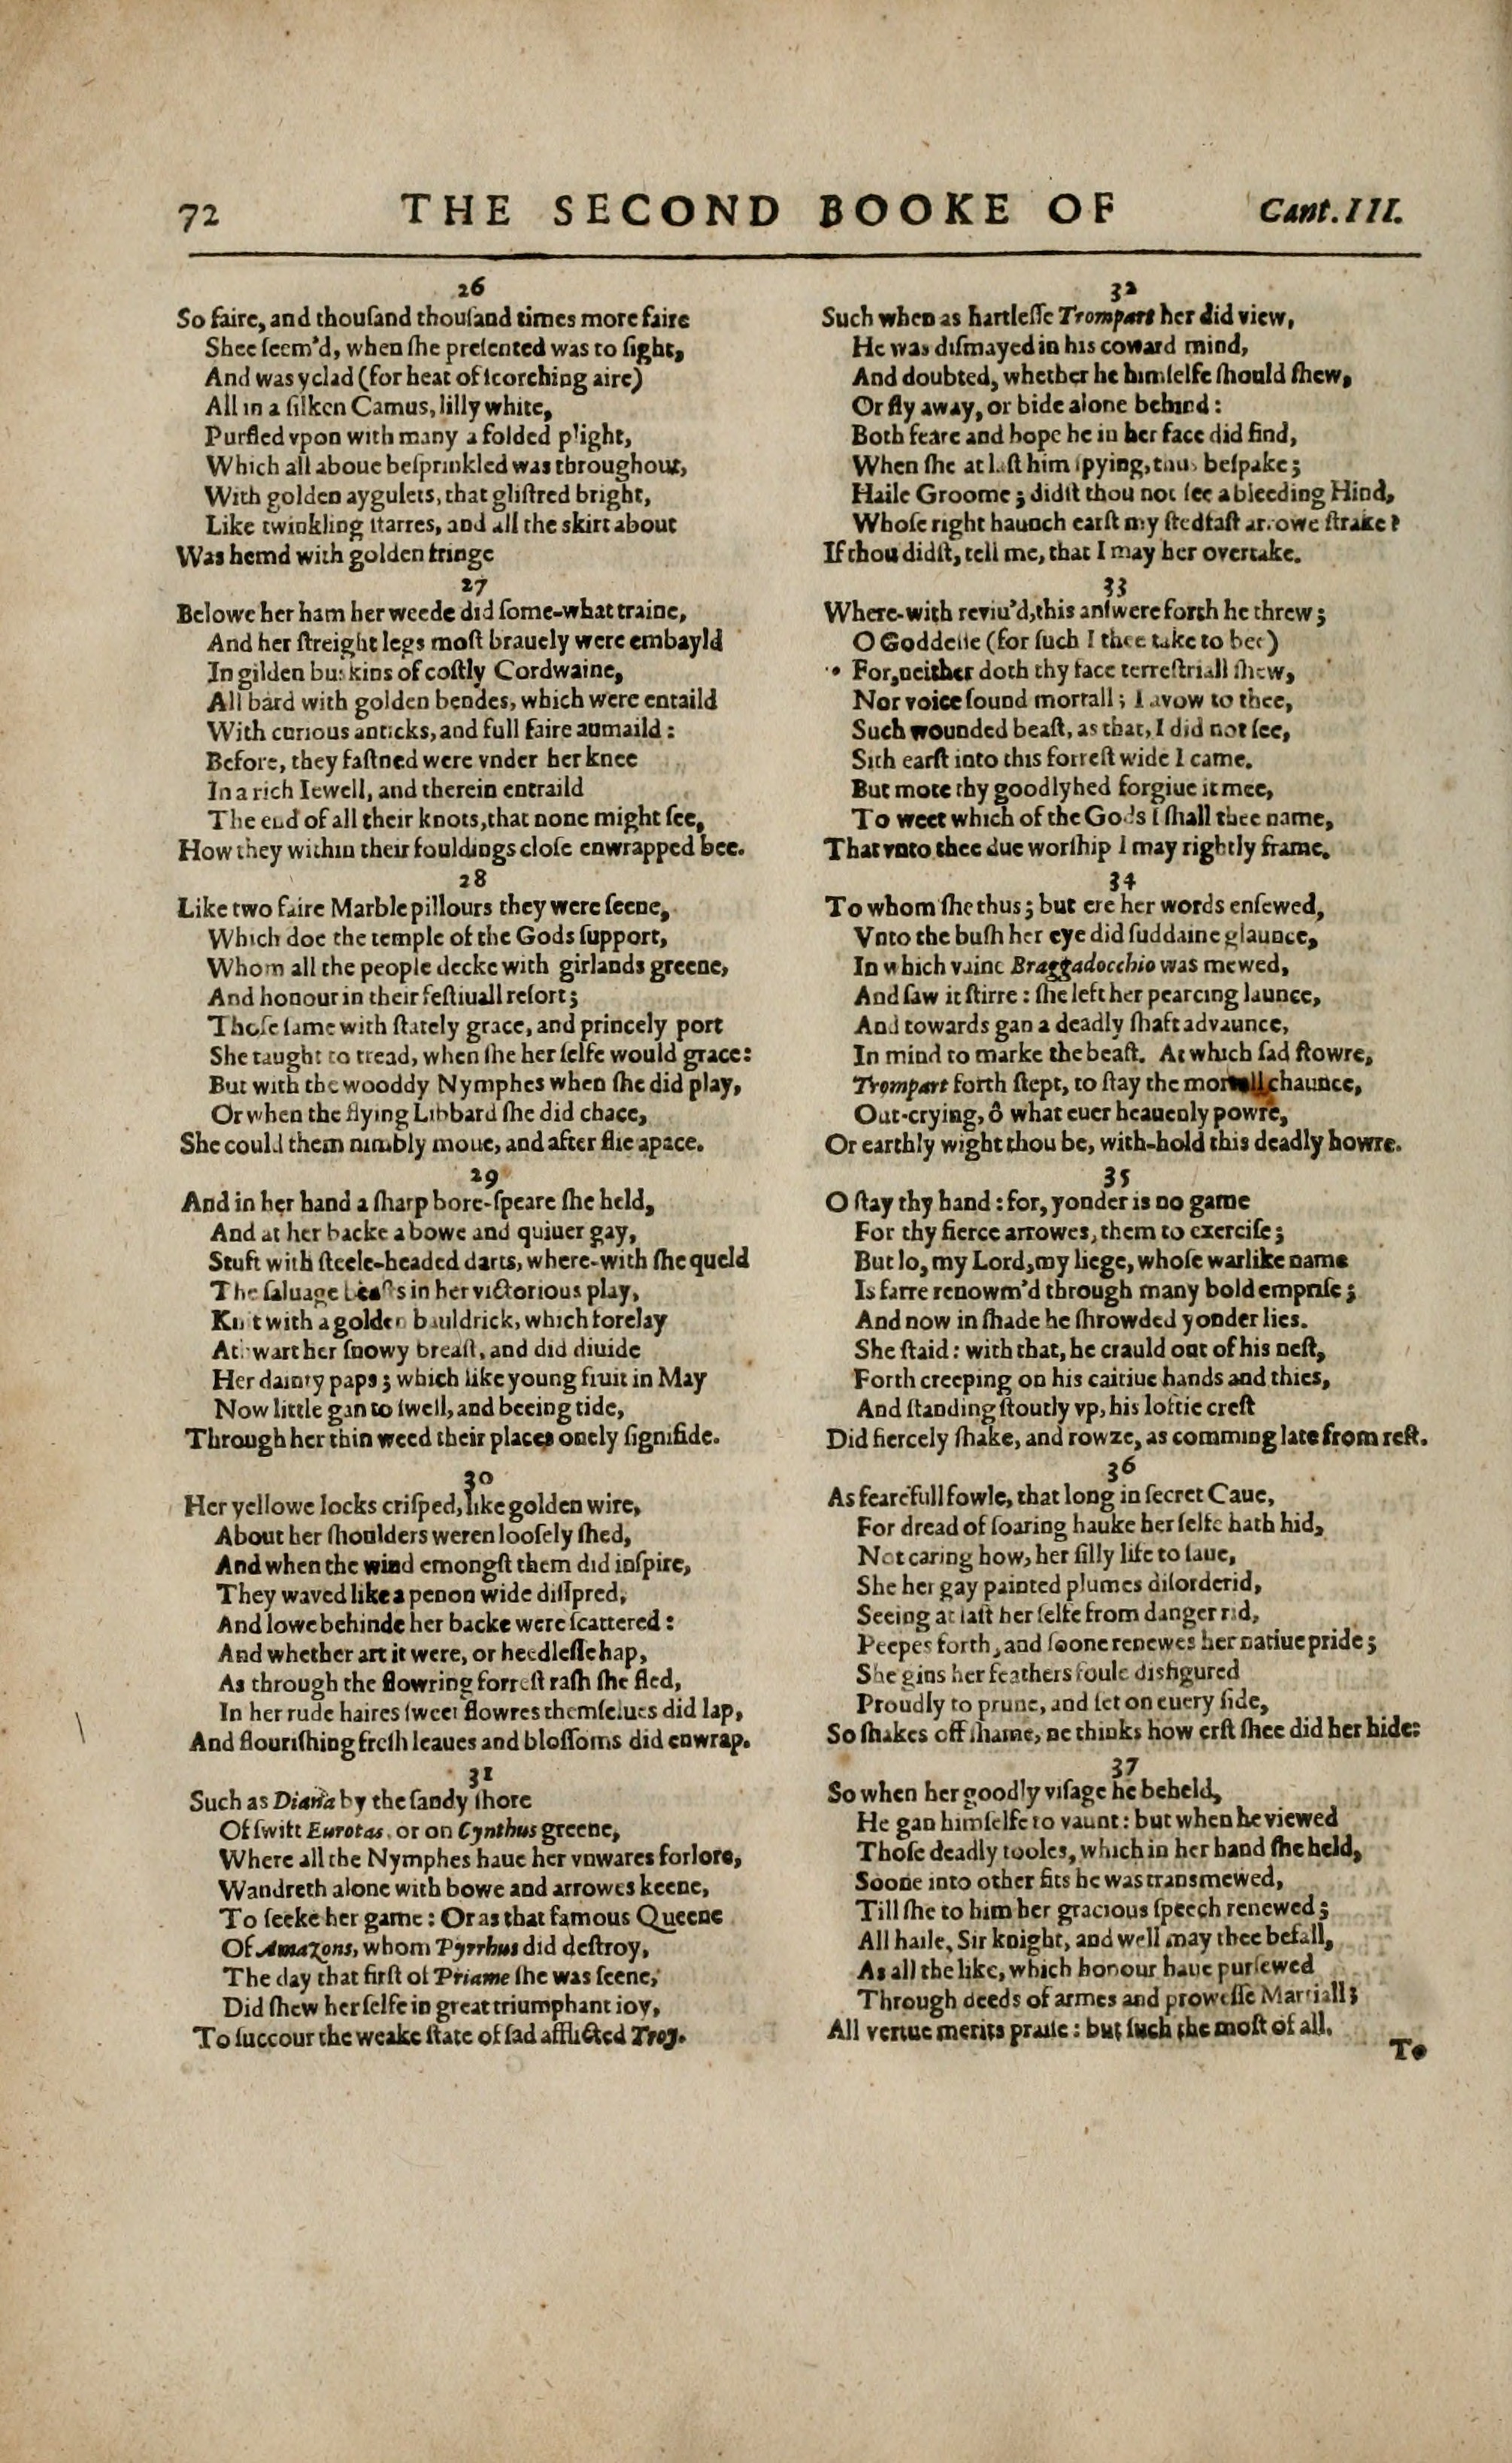 72 THE SECOND BOOKE OF Cant. III.
26
So faire, and thouſand thouſand times more faire
Shee ſeem'd, when ſhe preſented was to ſight,
And was yclad (for heat of ſcorching aire)
All in a ſilken Camus, lilly white,
Purfled vpon with many a folded plight,
Which all aboue beſprinkled was throughout,
With golden aygulets, that gliſtred bright,
Like twinkling ſtarres, and all the skirt about
Was hemd with golden fringe
27
Belowe her ham her weede did ſome-what traine,
And her ſtreight legs moſt brauely were embayld
In gilden buskins of coſtly Cordwaine,
All bard with golden bendes, which were entaild
With curious anticks, and full faire aumaild:
Before, they faſtned were vnder her knee
In a rich Iewell, and therein entraild
The end of all their knots, that none might ſee,
How they within their fouldings cloſe enwrapped bee.
28
Like two faire Marble pillours they were ſeene,
Which doe the temple of the Gods ſupport,
Whom all the people decke with girlands greene,
And honour in their feſtiuall reſort;
Thoſe ſame with ſtately grace, and princely port
She taught to tread, when ſhe her ſelfe would grace:
But with the wooddy Nymphes when ſhe did play,
Or when the flying Libbard ſhe did chace,
She could them nimbly moue, and after flie apace.
29
And in her hand a ſharp bore-ſpeare ſhe held,
And at her backe a bowe and quiuer gay,
Stuft with ſteele-headed darts, where-with ſhe queld
The ſaluage beaſts in her victorious play,
Knit with a golden bauldrick, which forelay
Athwart her ſnowy breaſt, and did diuide
Her dainty paps; which like young fruit in May
Now little gan to ſwell, and beeing tide,
Through her thin weed their places onely ſignifide.
30
Her yellowe locks criſped, like golden wire,
About her ſhoulders weren looſely ſhed,
And when the wind emongſt them did inſpire,
They waved like a penon wide diſſpred,
And lowe behinde her backe were ſcattered:
And whether art it were, or heedleſſe hap,
As through the flowring forreſt raſh ſhe fled,
In her rude haires ſweet flowres themſelues did lap,
And flouriſhing freſh leaues and bloſſoms did enwrap.
31
Such as Diana by the ſandy ſhore
Of ſwift Eurotas, or on Cynthus greene,
Where all the Nymphes haue her vnwares forlore,
Wandreth alone with bowe and arrowes keene,
To ſeeke her game: Or as that famous Queene
Of Amazons, whom Pyrrhus did deſtroy,
The day that firſt of Priame ſhe was ſeene,
Did ſhew her ſelfe in great triumphant ioy,
To ſuccour the weake ſtate of ſad afflicted Troy.
32
Such when as hartleſſe Trompart her did view,
He was diſmayed in his coward mind,
And doubted, whether he himſelfe ſhould ſhew,
Or fly away, or bide alone behind:
Both feare and hope he in her face did find,
When ſhe at laſt him ſpying, thus beſpake;
Haile Groome; didſt thou not ſee a bleeding Hind,
Whoſe right haunch earſt my ſtedfaſt arrowe ſtrake?
If thou didſt, tell me, that I may her overtake.
33
Where-with reviu'd, this anſwere forth he threw;
O Goddeſſe (for ſuch I thee take to bee)
For, neither doth thy face terreſtriall ſhew,
Nor voice ſound mortall; I avow to thee,
Such wounded beaſt, as that, I did not ſee,
Sith earſt into this forreſt wide I came.
But mote thy goodlyhed forgiue it mee,
To weet which of the Gods I ſhall thee name,
That vnto thee due worſhip I may rightly frame.
34
To whom ſhe thus; but ere her words enſewed,
Vnto the buſh her eye did ſuddaine glaunce,
In which vaine Braggadocchio was mewed,
And ſaw it ſtirre: ſhe left her pearcing launce,
And towards gan a deadly ſhaft advaunce,
In mind to marke the beaſt. At which ſad ſtowre,
Trompart forth ſtept, to ſtay the mortall chaunce,
Out-crying, ô what euer heauenly powre,
Or earthly wight thou be, with-hold this deadly howre.
35
O ſtay thy hand: for, yonder is no game
For thy fierce arrowes, them to exerciſe;
But lo, my Lord, my liege, whoſe warlike name
Is farre renowm'd through many bold empriſe;
And now in ſhade he ſhrowded yonder lies.
She ſtaid: with that, he crauld out of his neſt,
Forth creeping on his caitiue hands and thies,
And ſtanding ſtoutly vp, his loftie creſt
Did fiercely ſhake, and rowze, as comming late from reſt.
36
As fearefull fowle, that long in ſecret Caue,
For dread of ſoaring hauke her ſelfe hath hid,
Not caring how, her ſilly life to ſaue,
She her gay painted plumes diſorderid,
Seeing at laſt her ſelfe from danger rid,
Peepes forth, and ſoone renewes her natiue pride;
She gins her feathers foule disfigured
Proudly to prune, and ſet on euery ſide,
So ſhakes off ſhame, ne thinks how erſt ſhee did her hide:
37
So when her goodly viſage he beheld,
He gan himſelfe to vaunt: but when he viewed
Thoſe deadly tooles, which in her hand ſhe held,
Soone into other fits he was transmewed,
Till ſhe to him her gracious ſpeech renewed;
All haile, Sir knight, and well may thee befall,
As all the like, which honour haue purſewed
Through deeds of armes and proweſſe Martiall;
All vertue merits praiſe: but ſuch the moſt of all.
To